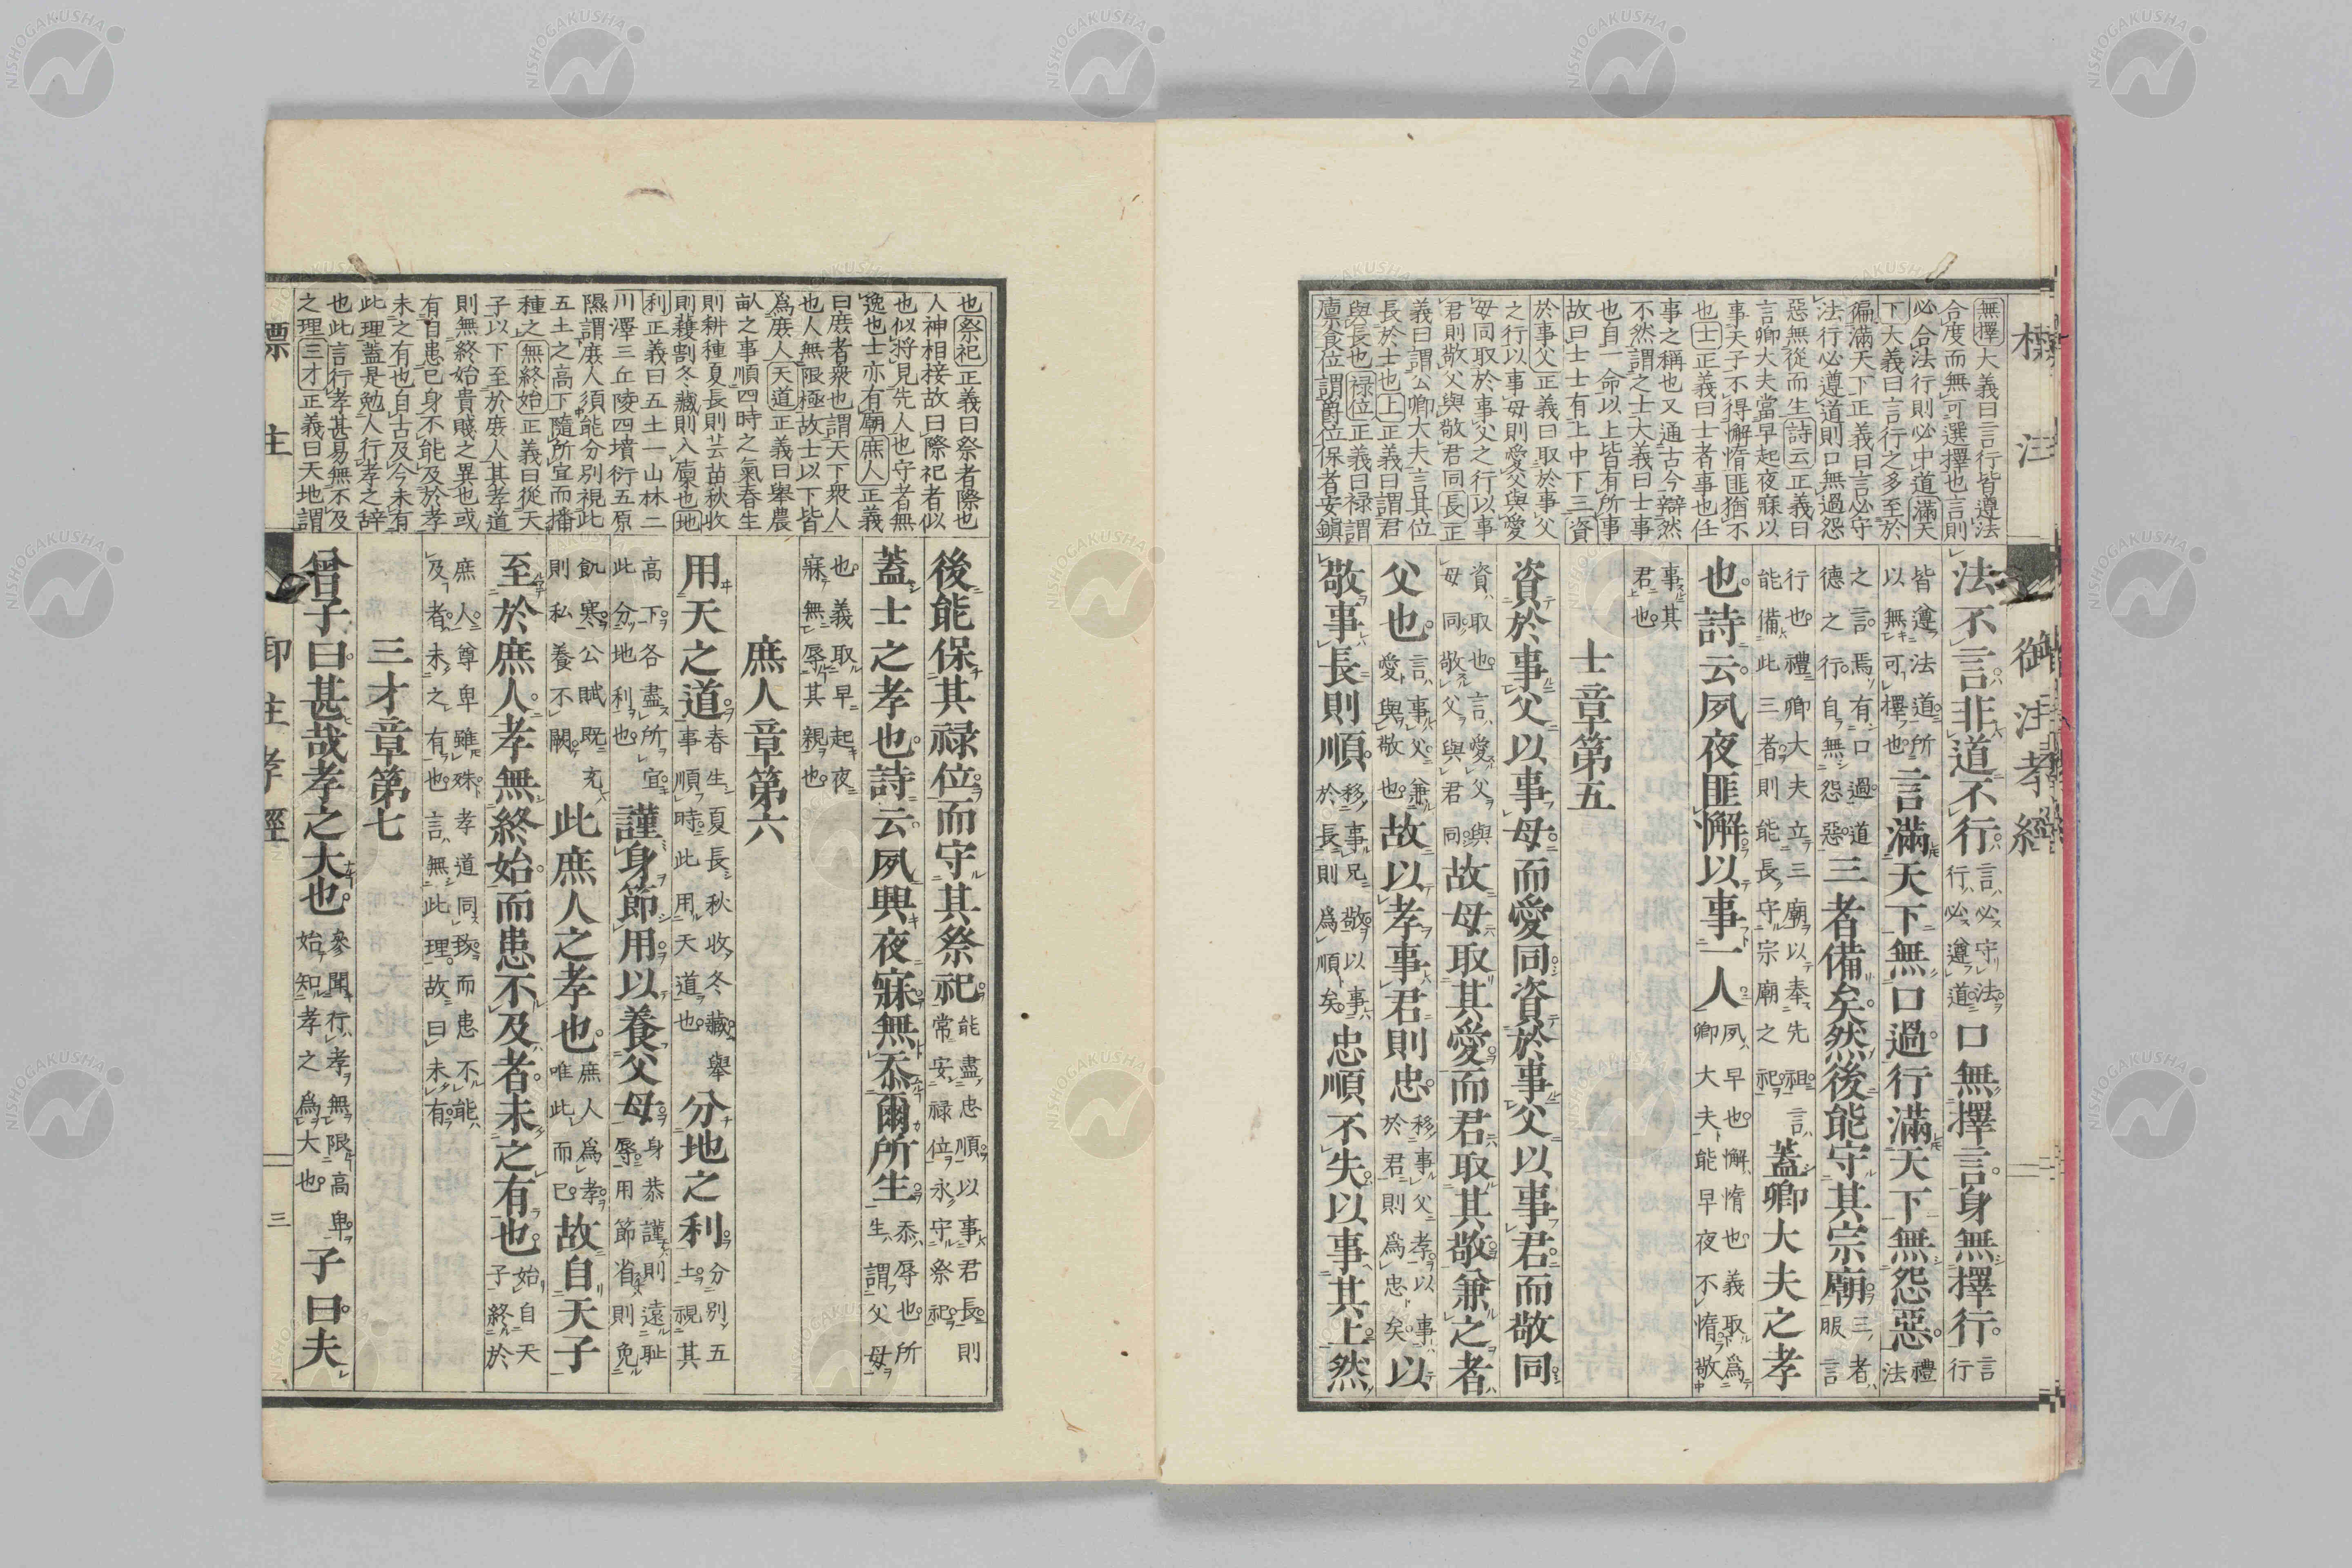 標注　御注孝經
無擇大義曰言行皆遵法
合度而無可選擇也言則
必合法行則必中道滿天
下大義曰言行之多至於
徧滿天下正義曰言必守
法行必遵道則口無過怨
惡無從而生詩云正義曰
言卿大夫當早起夜寐以
事天子不得懈惰匪猶不
也士正義曰士者事也任
事之稱也又通古今辯然
不然謂之士大義曰士事
也自一命以上皆有所事
故曰士士有上中下三資
於事父正義曰取於事父
之行以事母則愛父與愛
母同取於事父之行以事
君則敬父與敬君同長正
義曰謂公卿大夫言其位
長於士也上正義曰謂君
與長也禄位正義曰禄謂
廩食位謂爵位保者安鎮
法不言非道不行言必守法行必遵道口無擇言身無擇行言行
皆遵法道所以無可擇也言滿天下無口過行滿天下無怨惡禮法
之言焉有口過道德之行自無怨惡三者備矣然後能守其宗廟三者服言
行也禮卿大夫立三廟以奉先祖言能備此三者則能長守宗廟之祀蓋卿大夫之孝
也詩云夙夜匪懈以事一人夙早也懈惰也義取爲卿大夫能早夜不惰敬
事其君也
士章第五
資於事父以事母而愛同資於事父以事君而敬同
資取也言愛父與母同敬父與君同故母取其愛而君取其敬兼之者
父也言事父兼愛與敬也故以孝事君則忠移事父孝以事於君則爲忠矣以
敬事長則順移事兄敬以事於長則爲順矣忠順不失以事其上然
也祭祀正義曰祭者際也
人神相接故曰際祀者似
也似將見先人也守者無
逸也士亦有廟庶人正義
曰庶者衆也謂天下衆人
也人無限極故士以下皆
爲庶人天道正義曰舉農
畒之事順四時之氣春生
則耕種夏長則芸苗秋收
則穫割冬藏則入廩也地
利正義曰五土一山林二
川澤三丘陵四墳衍五原
隰謂庶人須能分別視此
五土之高下隨所宜而播
種之無終始正義曰從天
子以下至於庶人其孝道
則無終始貴賤之異也或
有自患已身不能及於孝
未之有也自古及今未有
此理蓋是勉人行孝之辞
也此言行孝甚易無不及
之理三才正義曰天地謂
後能保其禄位而守其祭祀能盡忠順以事君長則常安禄位永守祭祀
蓋士之孝也詩云夙興夜寐無忝爾所生忝辱也所生謂父母
也義取早起夜寐無辱其親也
庶人章第六
用天之道春生夏長秋收冬藏舉事順時此用天道也分地之利分別五土視其
高下各盡所宜此分地利也謹身節用以養父母身恭謹則遠恥辱用節省則免
飢寒公賦既充則私養不闕此庶人之孝也庶人爲孝唯此而已故自天子
至於庶人孝無終始而患不及者未之有也始自天子終於
庶人尊卑雖殊孝道同致而患不能及者未之有也言無此理故曰未有
三才章第七
曾子曰甚哉孝之大也參聞行孝無限高卑始知孝之爲大也子曰夫
標注　御注孝經　三